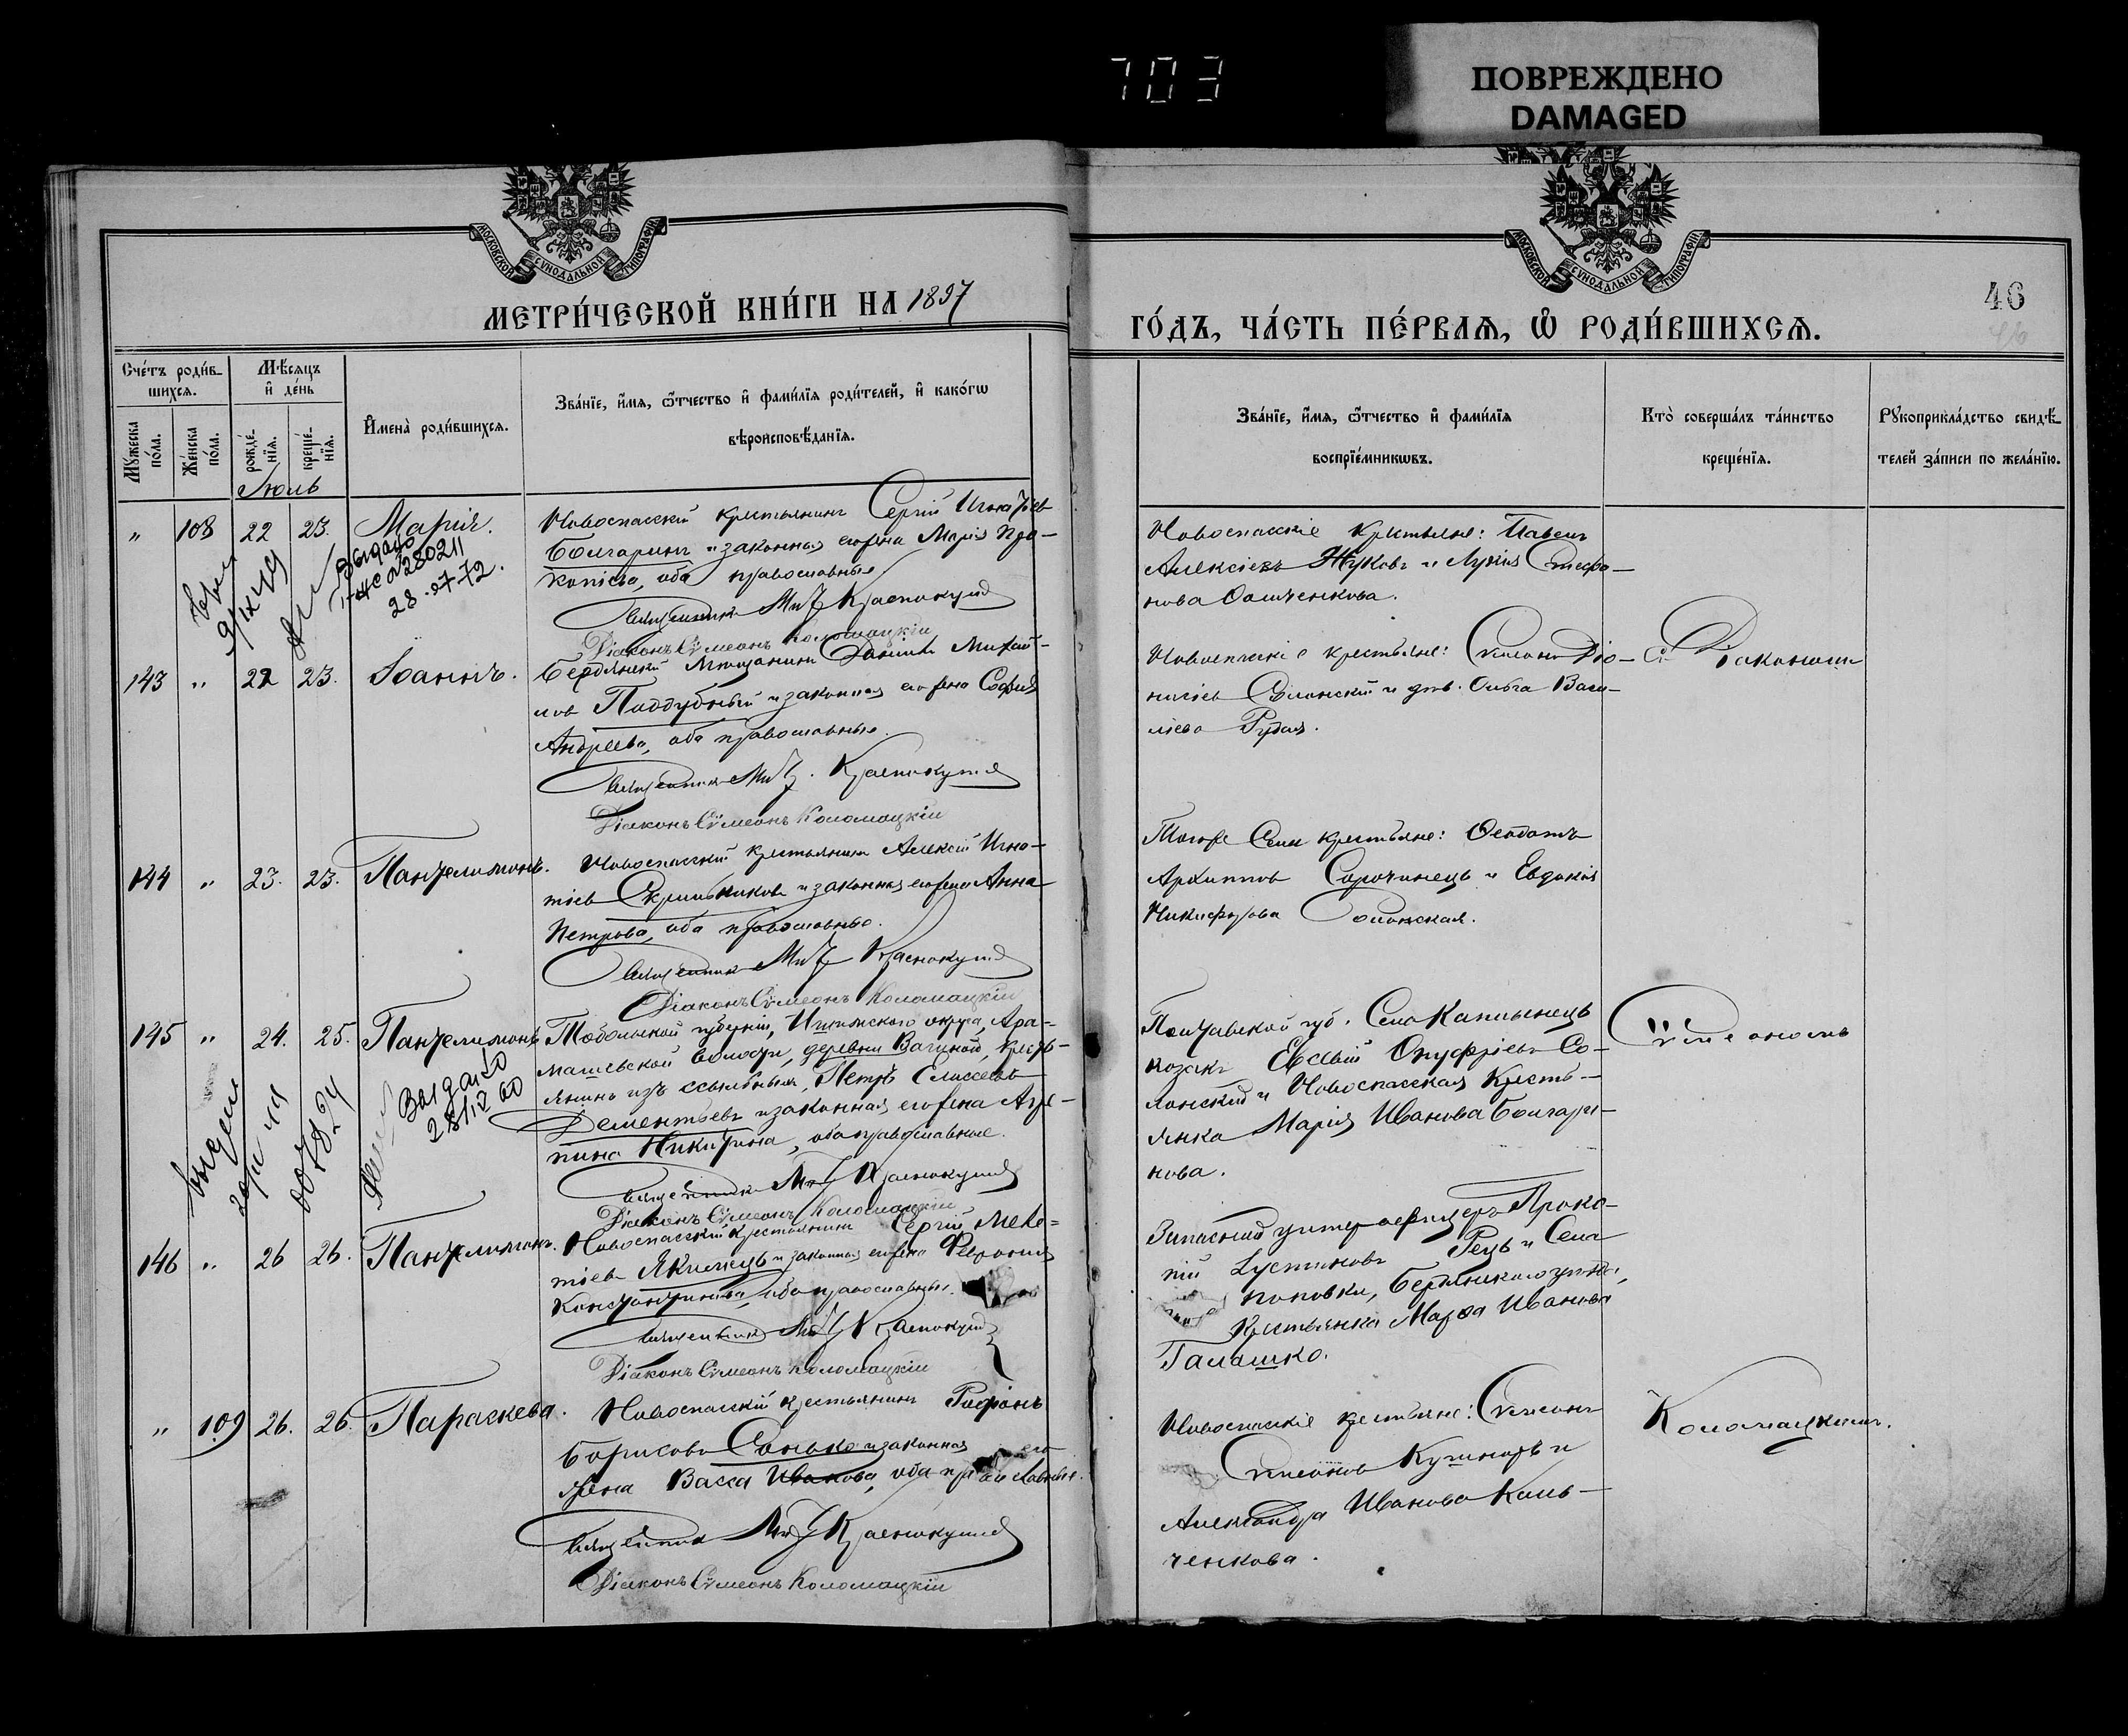 703
ПОВРЕЖДЕНО
DAMAGED
МОСКОВСКОЙ СѴНОДАЛЬНОЙ ТИПОГРАФІИ
МОСКОВСКОЙ СѴНОДАЛЬНОЙ ТИПОГРАФІИ
МЕТРИ́ЧЕСКОЙ КНИ́ГИ НА 1897
ГО́ДЪ, ЧА́СТЬ ПЕ́РВАѦ, Ѽ РОДИ́ВШИХСѦ.
46
Сче́тъ роди́в-
шихсѧ.
Мѣ́сѧцъ
и҆ де́нь
Мꙋ́жеска по́ла.
Же́нска по́ла.
рожде́-
нїѧ.
креще́-
нїѧ.
И҆мена̀ роди́вшихсѧ.
Зва́нїе, и҆́мѧ, ѻ҆́тчество и҆ фами́лїѧ роди́телей, и҆ како́гѡ
вѣроисповѣ́данїѧ.
Зва́нїе, и҆́мѧ, ѻ҆́тчество и҆ фами́лїѧ
воспрїе́мникѡвъ.
Кто̀ соверша́лъ та́инство
креще́нїѧ.
Рꙋкоприкла́дство свидѣ́-
телей за́писи по жела́нїю.
Іюль
" 108 22 23. Марія.
Выдано
280211
28.07.72.
Новоспасскій крестьянинъ Сергій Игнатіевъ
Болгаринъ и законная его жена Марія Про-
копіева, оба православные
Священникъ Краснокутскій
Діаконъ Сѵмеонъ Коломацкій
Новоспасскіе крестьяне: Павелъ
Алексіевъ Жуковъ и Лукія Стефа-
нова
143 " 22 23. Іоаннъ.
Бердянскій мѣщанинъ Даніилъ Михай-
ловъ Поддубный и законная его жена Софія
Андреева, оба православные.
Священникъ Краснокутскій
Діаконъ Сѵмеонъ Коломацкій
Новоспасскіе крестьяне: Симеонъ Діо-
нисіевъ и дѣв. Ольга Васи-
ліева Рудая.
Діакономъ
144 " 23. 23. Пантелимонъ.
Новоспасскій крестьянинъ Алексій Игна-
тіевъ Скрипниковъ и законная его жена Анна
Петрова, оба православные.
Священникъ Краснокутскій
Діаконъ Сѵмеонъ Коломацкій
Того же села крестьяне: Ѳеодотъ
Архиппов Сорочинецъ и Евдокія
Никифорова
145 " 24. 25. Пантелимонъ
Выдано
28/12 60
007824
Тобольской губерніи, Ишимскаго округа, Ара-
машевской волости, деревни Вагиной, кресть-
янинъ изъ ссыльныхъ, Петръ Елисеевъ
Дементьевъ и законная его жена Агри-
пина Никитина, оба православные.
Священникъ Краснокутскій
Діаконъ Сѵмеонъ Коломацкій
Полтавской губ. Села
козакъ Евсевій Онуфріевъ Со-
лонскій и Новоспасская Кресть-
янка Марія Иванова Болгари-
нова.
Сѵмеономъ
146 " 26 26. Пантелимонъ.
Новоспасскій крестьянинъ Сергій Меѳо-
тіевъ Якименко и законная его жена Февронія
Константинова, оба православные.
Священникъ Краснокутскій
Діаконъ Сѵмеонъ Коломацкій
Запасный унтеръ офицеръ Проко-
пій Іустиновъ Рецъ и Села
поповки, Бердянскаго уѣзда,
Крестьянка Марѳа Иванова
Галашко.
" 109 26. 26. Параскева.
Новоспасскій крестьянинъ
Борисовъ Сонько и законная его
жена Васса Иванова, оба православные.
Священникъ Краснокутскій
Діаконъ Сѵмеонъ Коломацкій
Новоспасскіе крестьяне: Симеонъ
Симеонов Кушниръ и
Александра Иванова Коль-
ченкова.
Коломацкимъ.